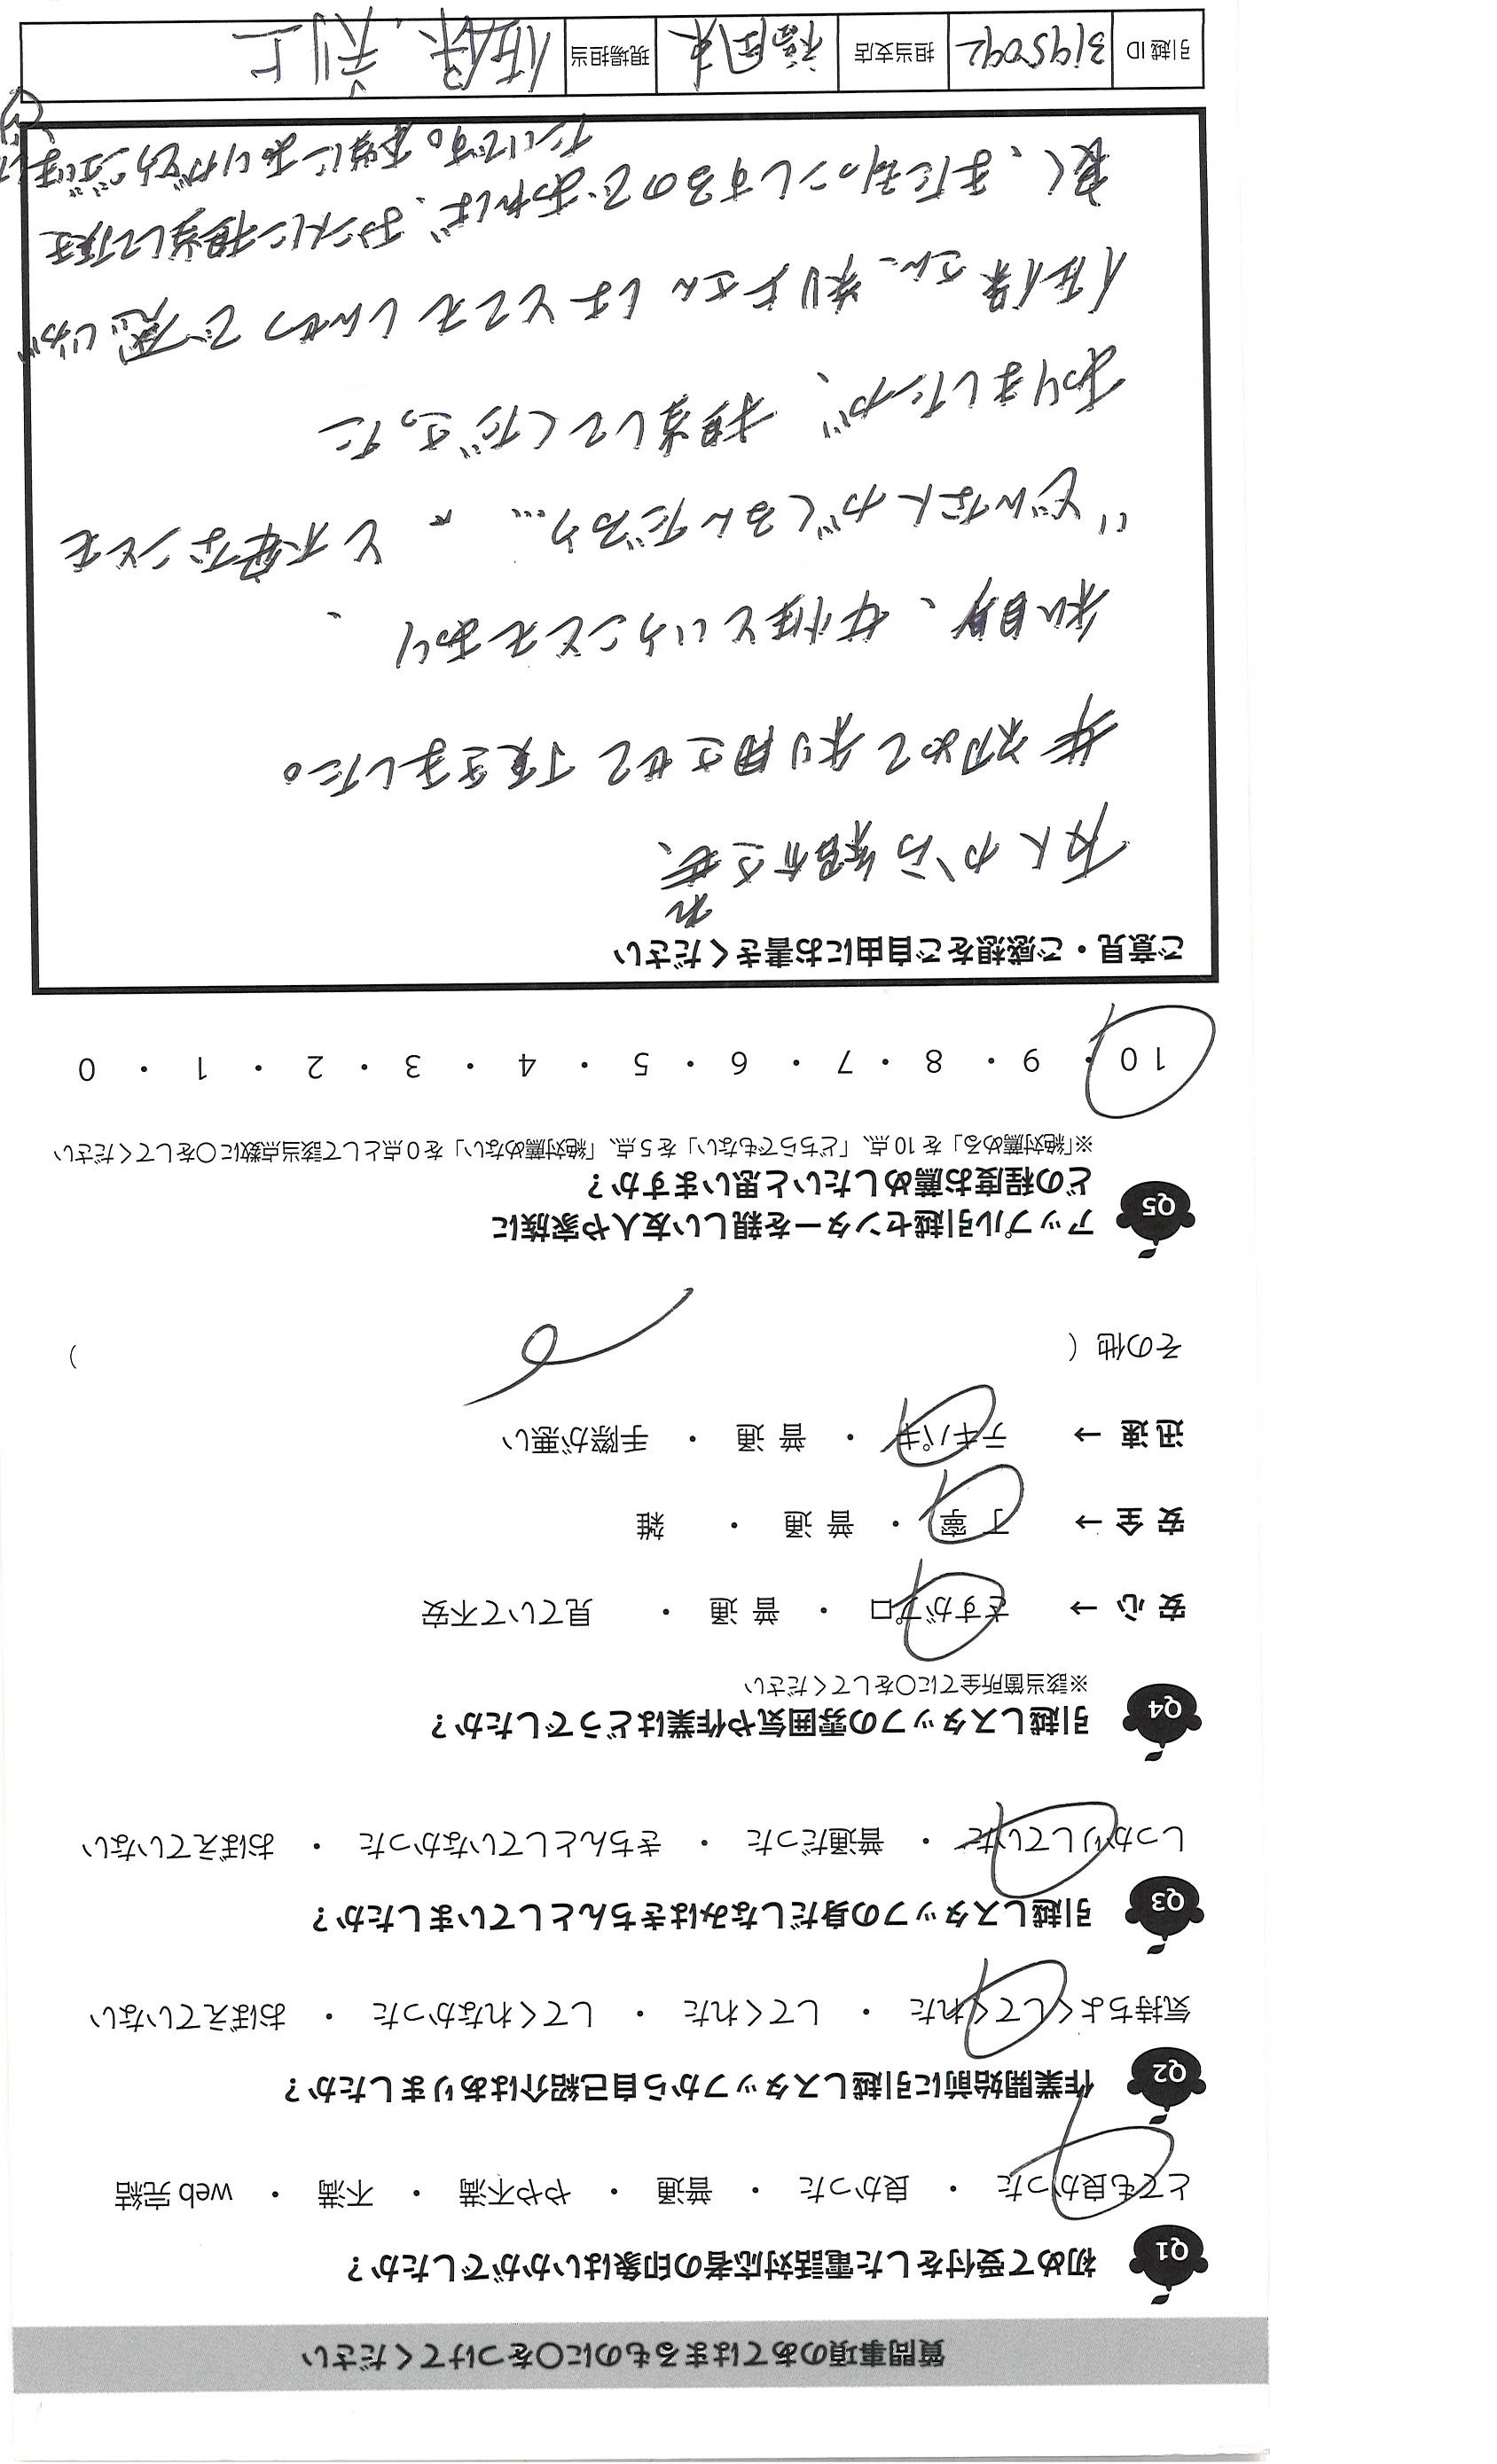 質問事項のあてはまるものに〇をつけてください
Q1 初めて受付をした電話対応者の印象はいかがでしたか？
とても良かった ・ 良かった ・ 普通 ・ やや不満 ・ 不満 ・ web 完結
Q2 作業開始前に引越しスタッフから自己紹介はありましたか？
気持ちよくしてくれた ・ してくれた ・ してくれなかった ・ おぼえていない
Q3 引越しスタッフの身だしなみはきちんとしていましたか？
しっかりしていた ・ 普通だった ・ きちんとしていなかった ・ おぼえていない
Q4 引越しスタッフの雰囲気や作業はどうでしたか？
※該当箇所全てに〇をしてください
安 心 → さすがプロ ・ 普 通 ・ 見ていて不安
安 全 → 丁 寧 ・ 普 通 ・ 雑
迅 速 → テキパキ ・ 普 通 ・ 手際が悪い
その他（ ）
Q5 アップル引越センターを親しい友人や家族に
どの程度お薦めしたいと思いますか？
※「絶対薦める」を 10 点、「どちらでもない」を 5 点、「絶対薦めない」を 0 点として該当点数に〇をしてください
10 ・ 9 ・ 8 ・ 7 ・ 6 ・ 5 ・ 4 ・ 3 ・ 2 ・ 1 ・ 0
ご意見・ご感想をご自由にお書きください
友人から紹介され、
初めて利用させて頂きました。
私自身、女性ということもあり、
"どんな人がくるんだろう…" と不安なことも
ありましたが、担当してくださった
さん、さんはとてもしんせつで感じが
良く、また引っこしするのであれば、お二人に担当して頂き
たいです。本当にありがとうございました
引越 ID 3195092 担当支店 福岡東 現場担当